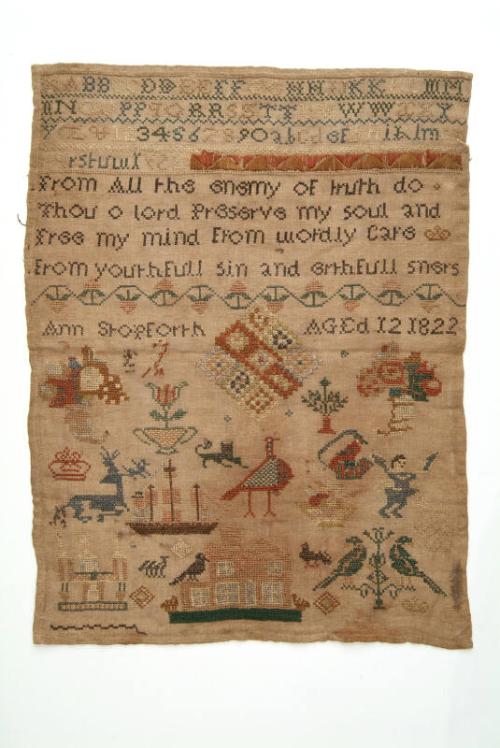 ABB DD FF HH KK MM
NN PP RR TT WW Y
34567890abcdef ihlm
rstuw
From All the enemy of truth do
Thou o lord Preserve my soul and
free my mind from wordly Care
From youthfull sin and erthfull sners
Ann Stopforth AGEd 12 1822